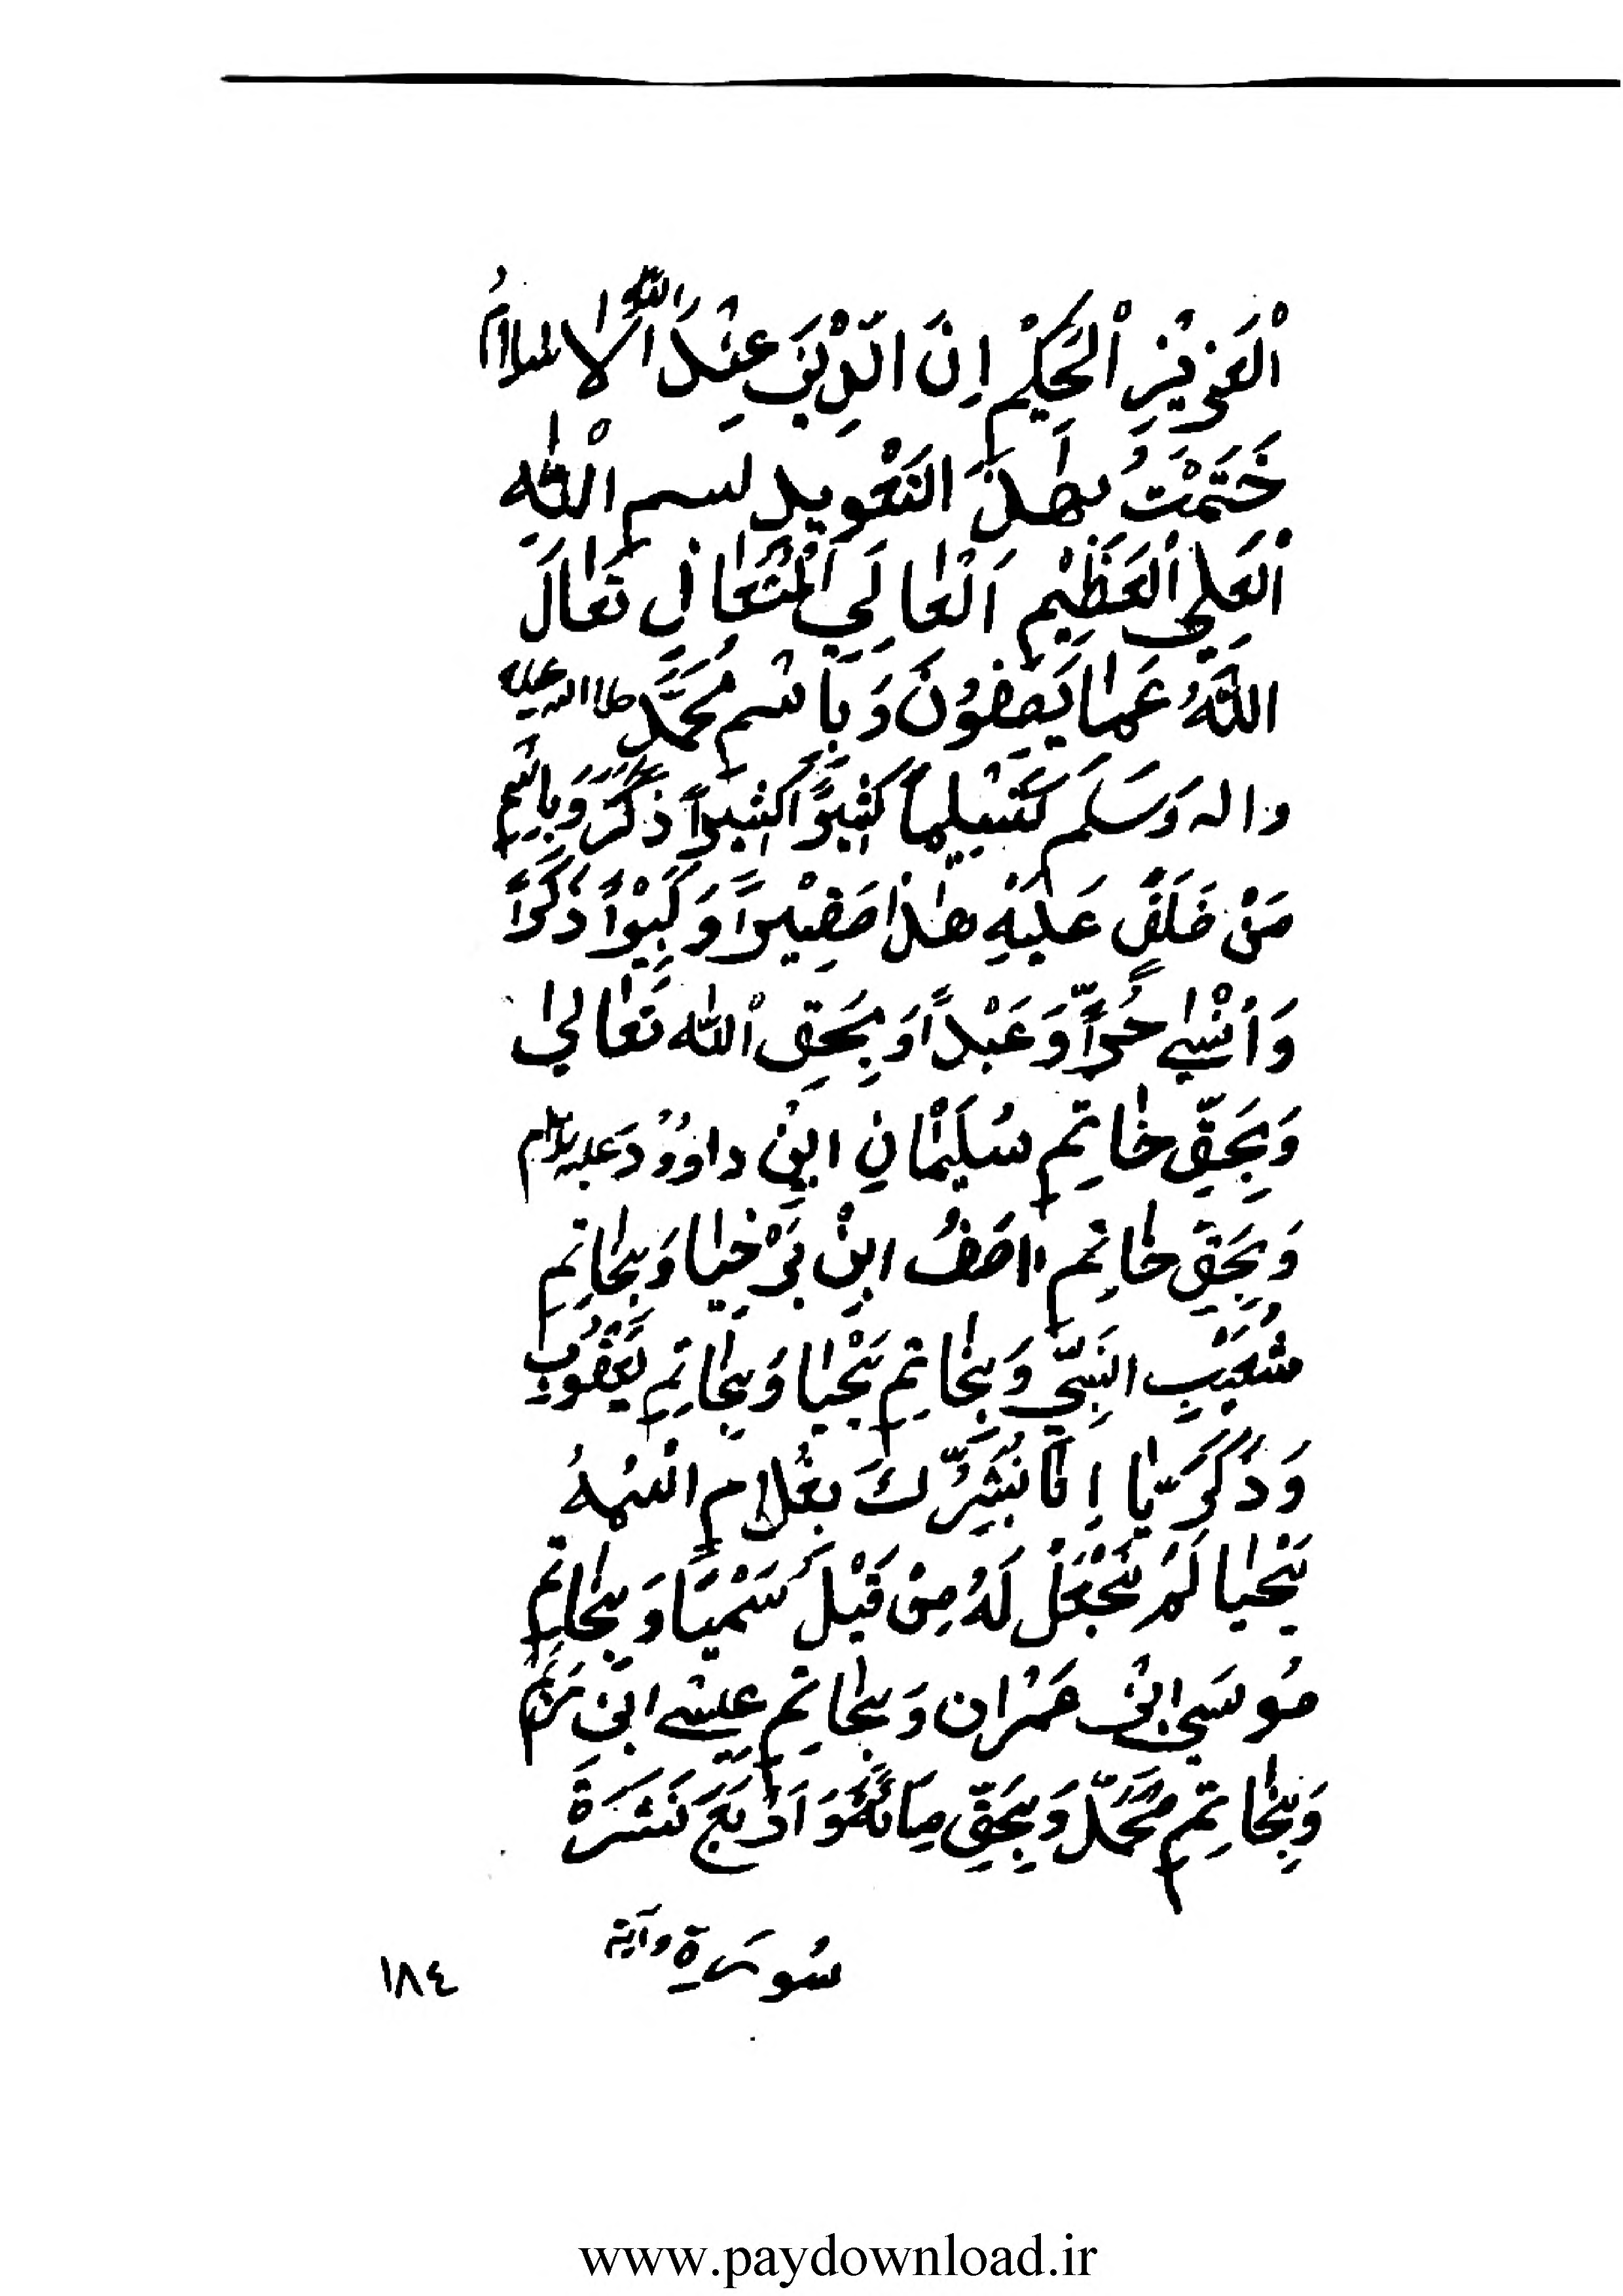 اْلعَزِيْزِ اْلحَكِيْمِ اِنَّ الدِّيْنَ عِنْدَ اللّٰهِ الاِسلامُ
خَتَمْتُ بِهٰذَ التَعْويد لسم اْللّٰهِ
اْلعَلِيِ اْلعَظِيْمِ اَلْعٰالِي اَلْمُتَعٰالِ تَعٰالَ
اللّٰهُ عَمٰا يَصِفوُنَ وَبِاسْمِ مُحَمَّدٍ صلى الله عليه
واله وَسَلَمَ تَسْلِيماً كَثِيرًا كثِيراً ذَكَرَ وَبِاسْمِ
مَنْ خَلَفَ عَلَيْهِ هٰذٰا صَغِيْراً وَكَبِيْراً ذَكَراً
وَاُنْثىٰ حُرّاً وَعَبْداً وَبِحَقِ اْللّٰه تَعٰالىٰ
وَبِحَقِّ خٰاتِمِ سُلَيْمٰانِ ابْنِ داوُودَ عليه سلام
وَبِحَقِ خٰاتِمِ اصَفُ ابْنِ بَرْخِيٰا وَبِخٰاتِمِ
شُعَيْبِ النَبِيّ وَبِخٰاتِمِ يَحْيٰا وَبِخٰاتِمِ يَعْقُوُبِ
وَذَكَرِيّٰا اِنّٰا نُبَشِرُّكَ بِغُلٰامِ اسْمُهُ
يَحْيٰا لَمْ نَجْعَلْ لَهُ مِنْ قَبْلَ سَمْيَّا وَبِخٰاتِمِ
مُوسَى ابْنِ عَمْرٰان وَبِخٰاتِمِ عِيسٰى ابْنِ مَرْيَمْ
وَبِخٰاتِمِ مُحَمَّدْ وَبِحَقِّ مِائَةُ وَاَرْبَعَ عَشَرَةَ
سُورَةِ وآية
١٨٤
www.paydownload.ir